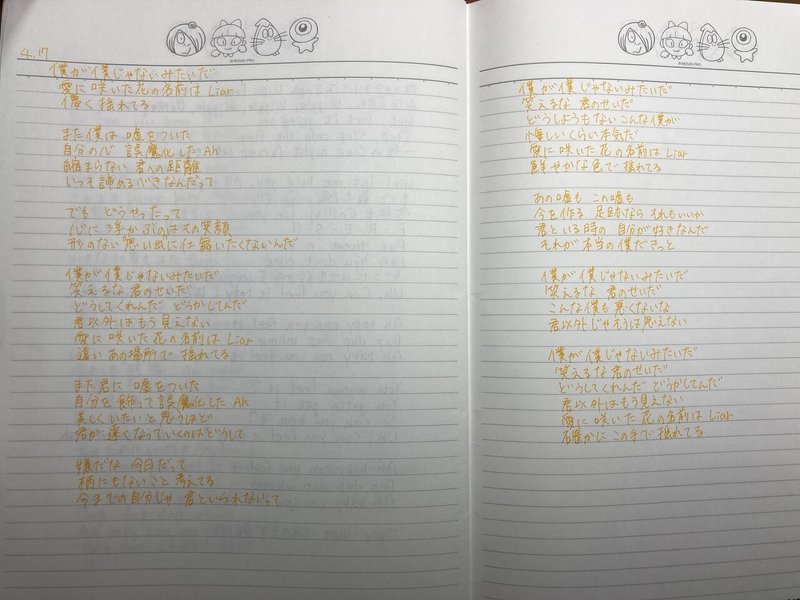 © MIZUKI PRO.
4.17
僕が僕じゃないみたいだ
愛に咲いた花の名前は Liar
儚く 揺れてる
また僕は 嘘をついた
自分の心 誤魔化した Ah
縮まらない 君への距離
いっそ 諦めるべきなんだって
でも どうやったって
心に浮かぶのはその笑顔
形のない思い出に仕舞いたくないんだ
僕が僕じゃないみたいだ
笑えるな 君のせいだ
どうしてくれんだ どうかしてんだ
君以外はもう見えない
愛に咲いた花の名前は Liar
遠い あの場所で 揺れてる
また君に 嘘をついた
自分を飾って誤魔化した Ah
美しくいたいと思うほど
君が遠くなっていくのはどうして
嫌だな 今日だって
柄にもないこと 考えてる
今までの自分じゃ 君といられないって
© MIZUKI PRO.
僕が僕じゃないみたいだ
笑えるな 君のせいだ
どうしようもない こんな僕が
悔しいくらい本気だ
愛に咲いた花の名前は Liar
鮮やかな色で 揺れてる
あの嘘も この嘘も
今を作る 足跡なら それもいいか
君といる時の 自分が好きなんだ
それが本当の僕だ きっと
僕が僕じゃないみたいだ
笑えるな 君のせいだ
こんな僕も悪くないな
君以外じゃそうは思えない
僕が僕じゃないみたいだ
笑えるな 君のせいだ
どうしてくれんだ どうかしてんだ
君以外はもう見えない
愛に咲いた花の名前は Liar
確かにこの手で 揺れてる